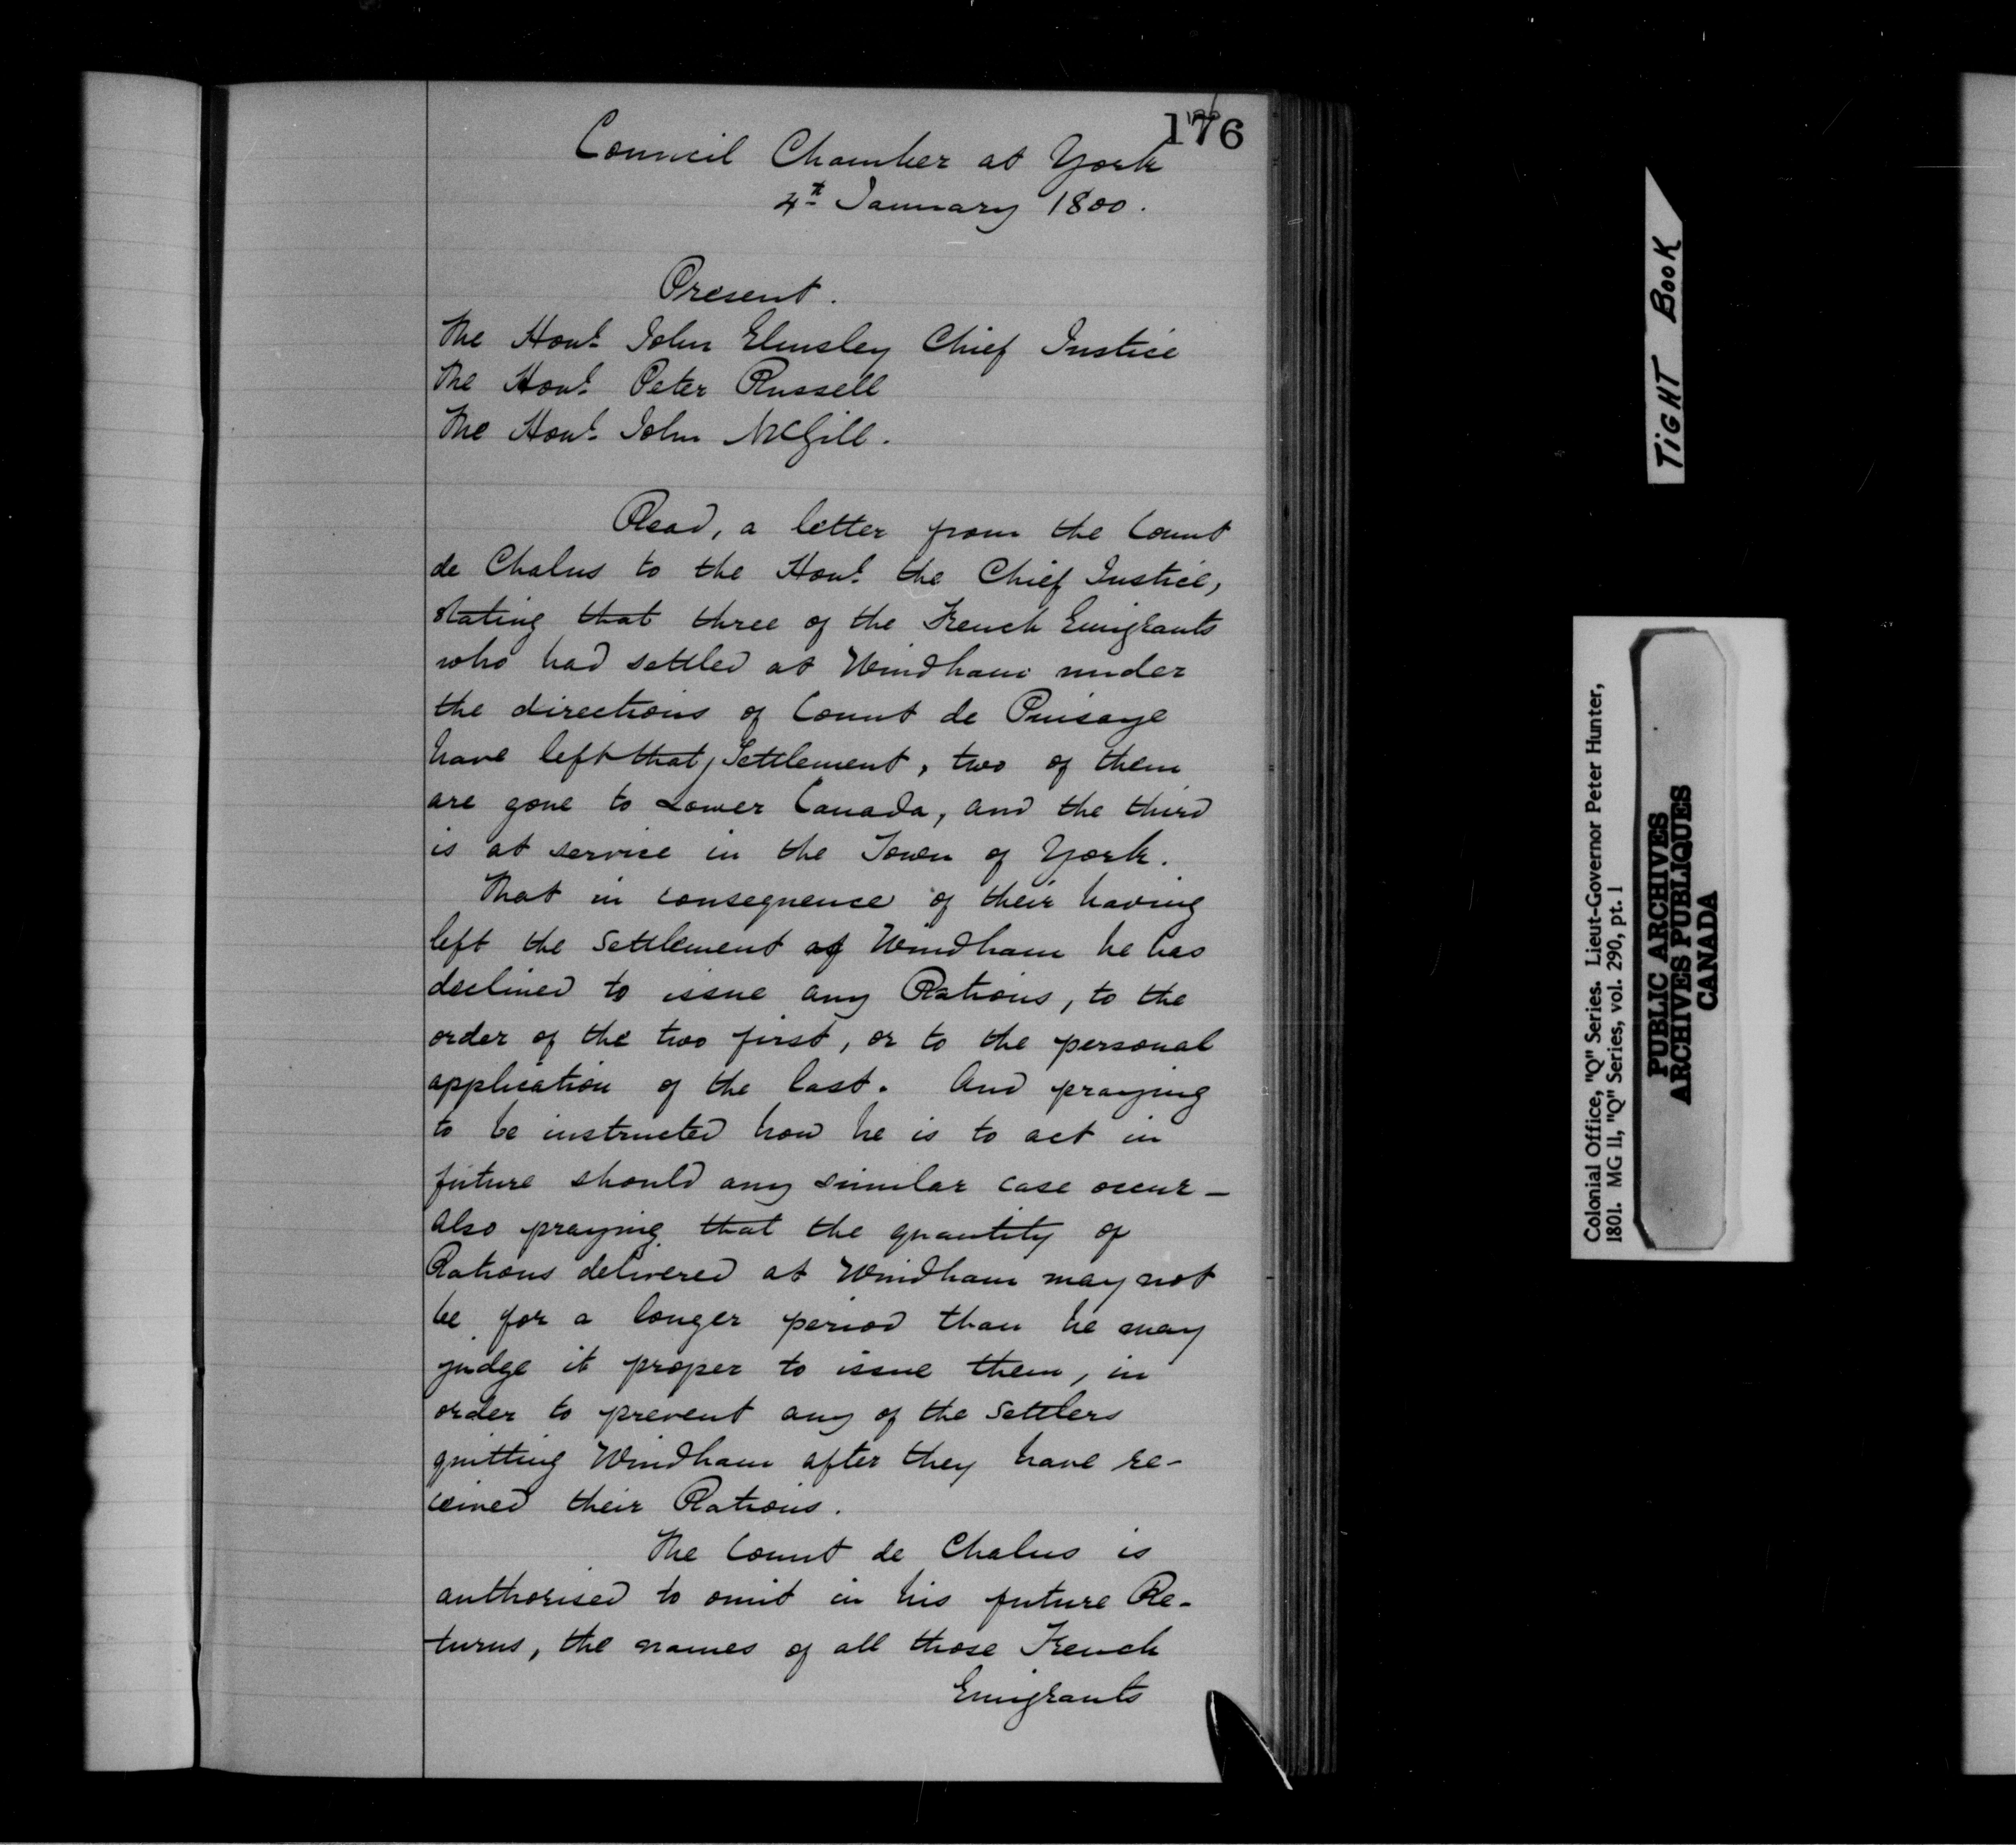 176
Council Chamber at York
4th January 1800.
Present.
The Honl. John Elmsley Chief Justice
The Honl. Peter Russell
The Honl. John McGill.
Read, a letter from the Count
de Chalus to the Honl. the Chief Justice,
stating that three of the French Emigrants
who had settled at Windham under
the directions of Count de Puisaye
have left that, Settlement, two of them
are gone to Lower Canada, and the third
is at service in the Town of York.
That in consequence of their having
left the Settlement of Windham he has
declined to issue any Rations, to the
order of the two first, or to the personal
application of the last. And praying
to be instructed how he is to act in
future should any similar case occur –
also praying that the quantity of
Rations delivered at Windham may not
be for a longer period than he may
judge it proper to issue them, in
order to prevent any of the Settlers
quitting Windham after they have re-
ceived their Rations.
The Count de Chalus is
authorised to omit in his future Re-
turns, the names of all those French
Emigrants
TiGHT BOOK
Colonial Office, "Q" Series. Lieut-Governor Peter Hunter,
1801. MG 11, "Q" Series, vol. 290, pt. 1
PUBLIC ARCHIVES
ARCHIVES PUBLIQUES
CANADA